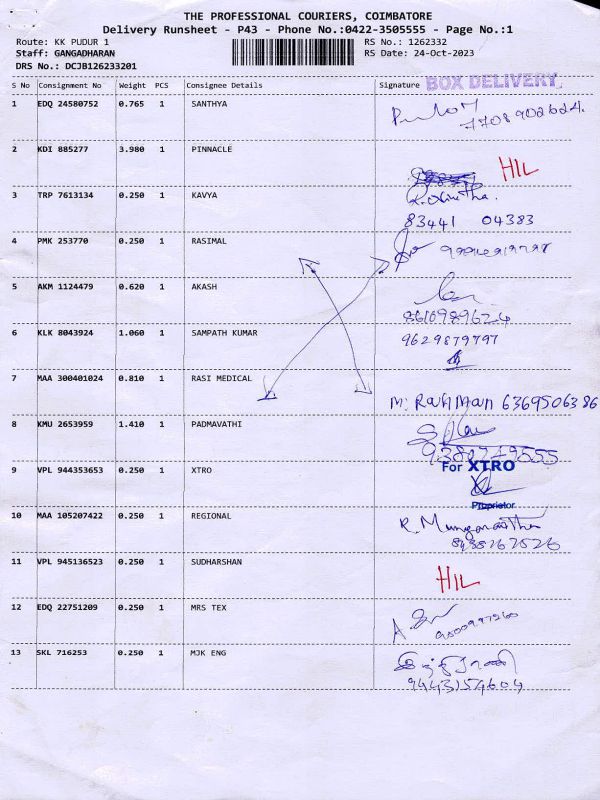 THE PROFESSIONAL COURIERS, COIMBATORE
Delivery Runsheet - P43 - Phone No.:0422-3505555 - Page No.:1
Route: KK PUDUR 1 RS No.: 1262332
Staff: GANGADHARAN RS Date: 24-Oct-2023
DRS No.: DCJB126233201
S No Consignment No Weight PCS Consignee Details Signature BOX DELIVERY
1 EDQ 24580752 0.765 1 SANTHYA
7708902624.
2 KDI 885277 3.980 1 PINNACLE
HIL
3 TRP 7613134 0.250 1 KAVYA
83441 04383
4 PMK 253770 0.250 1 RASIMAL
5 AKM 1124479 0.620 1 AKASH
8610989624
6 KLK 8043924 1.060 1 SAMPATH KUMAR
9629879797
7 MAA 300401024 0.810 1 RASI MEDICAL
M. Rahman 6369506386
8 KMU 2653959 1.410 1 PADMAVATHI
9380749555
9 VPL 944353653 0.250 1 XTRO
For XTRO
Proprietor
10 MAA 105207422 0.250 1 REGIONAL
11 VPL 945136523 0.250 1 SUDHARSHAN
HIL
12 EDQ 22751209 0.250 1 MRS TEX
13 SKL 716253 0.250 1 MJK ENG
9443154604